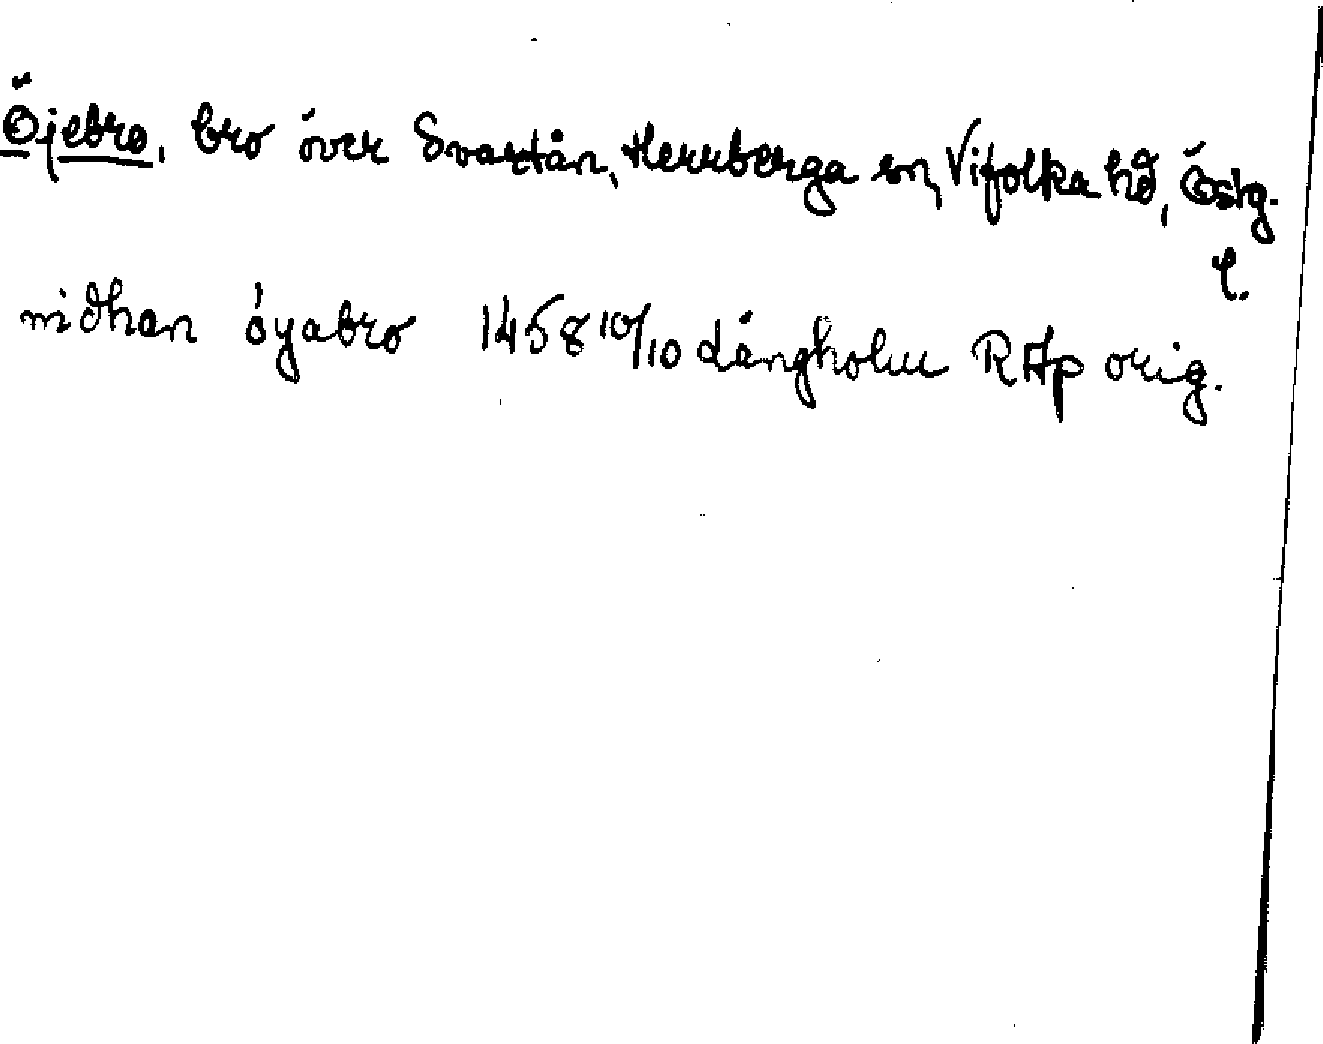 Öjebro, bro över Svartån, Herrberga sn, Vifolka hd, Östg.
l.
niðhan öyabro 1458 10/10 Långholm RAp orig.